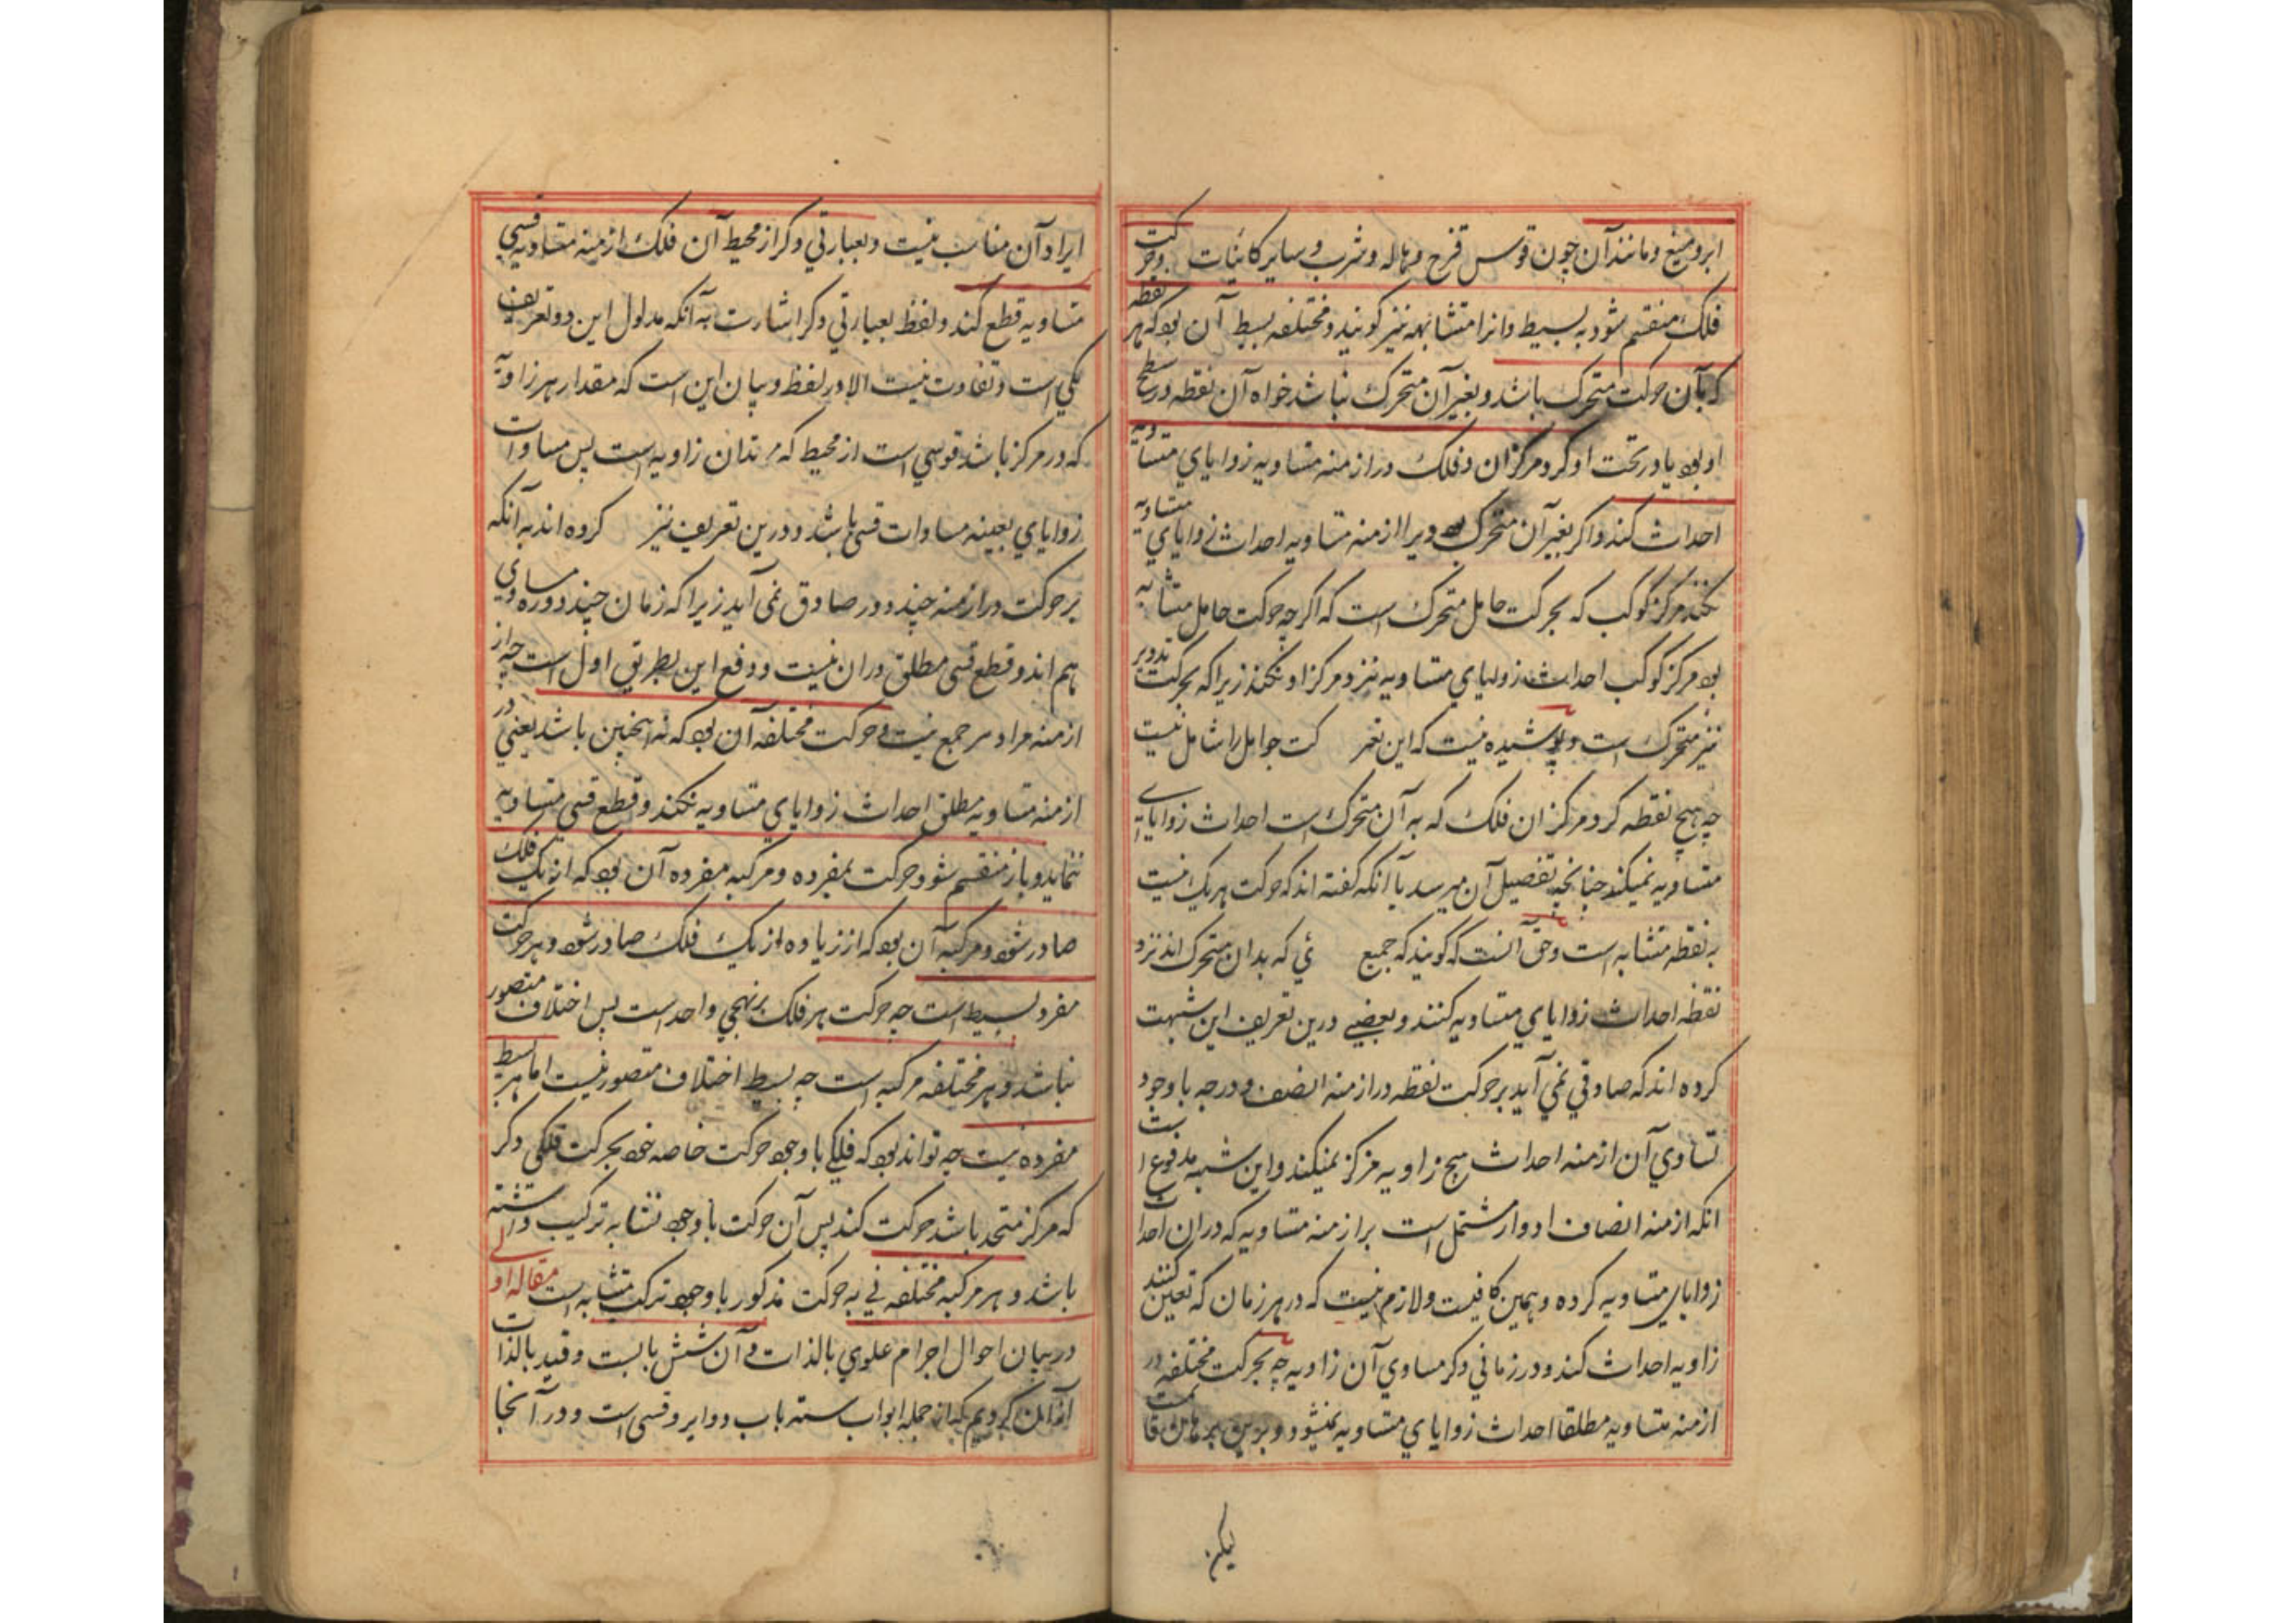 ابر و میغ و مانند آن چون قوس قزح و هاله و شهب و سایر کاینات وحرکت
فلک منقسم شود به بسیط و انرا متشابهه نیز کویند و مختلفه بسیط آن بود که هر نقطه
که بآن حرکت متحرک باشد و بغیر آن متحرک نباشد خواه آن نقطه در سطح
او بود یا در تحت او کرد مرکز ان فلک در ازمنه متساویه زوایای متساویه
احداث کند و اکر بغیر آن متحرک بود دیرا ازمنه متساویه احداث زوایای متساویه
نکند مرکز کوکب که بحرکت حامل متحرک است که اکرچه حرکت حامل متشابه
بود مرکز کوکب احداث زوایای متساویه نزد مرکز او نکند زیرا که بحرکت تدویر
نیز متحرک است و پوشیده نیست که این تعر کت حوامل را شامل نیست
چه هیچ نقطه کرد مرکز ان فلک که به آن متحرک است احداث زوایای
متساویه نمیکند چنانچه تفصیل آن میرسد با آنکه کفته اند که حرکت هر یک نسبت
به نقطه متشابه است و حق آنست که کویند که جمیع ئی که بدان متحرک اند نزد
نقطه احداث زوایای متساویه کنند و بعضیے درین تعریف این شبهت
کرده اند که صادق نمی آید بر حرکت نقطه در ازمنه انصف دورجه با وجود
تساوی آن ازمنه احداث هیچ زاویه مرکز نمیکند و این شبهه مدفوع است
انکه ازمنه انصاف ادوار مشتمل است بر ازمنه متساویه که در ان احداث
زوایای متساویه کرده و همین کافیست و لازم نیست که در هر زمان که تعین کنند
زاویه احداث کند و در زمانی دکر مساوی آن زاویه چه بحرکت مختلفه در
ازمنه متساویه مطلقا احداث زوایای متساویه نمیشود و برین
لیکن
ایراد آن مناسب نیست و بعبارتی دکر از محیط آن فلک ازمنه متساویه قسی
متساویه قطع کند و لفظ بعبارتی دکر اشارت به آنکه مدلول این دو تعریف
یکی است و تفاوت نیست الا در لفظ و بیان این است که مقدار هر زاویه
که در مرکز باشد قوسی است از محیط که تدان زاویه است پس مساوات
زوایای بعینه مساوات قسی باشد و درین تعریف نیز کرده اند به آنکه
بر حرکت در ازمنه چند دور صادق نمی آید زیرا که زمان چند دوره مساوی
هم اند و قطع قسی مطلق دران نیست و دفع این بطریق اول است چه از
ازمنه مراد هر جمع نیست و حرکت مختلفه آن بود که نه اینچنین باشد یعنی در
ازمنه متساویه مطلق احداث زوایای متساویه نکند و قطع قسی متساویه
ننماید و باز منقسم شود حرکت بمفرده و مرکبه مفرده آن بود که از یک فلک
صادر شود و مرکبه آن بود که از زیاده از یک فلک صادر شود و هر حرکت
مفرد بسیط است چه حرکت هر فلک بر نهجی واحد است پس اختلاف متصور
نباشد و هر مختلفه مرکبه است چه بسیط اختلاف متصور نیست اما هر بسیط
مفرده نیست چه تواند بود که فلکی با وجود حرکت خاصه خود بحرکت فلکی دکر
که مرکز متحد باشد حرکت کند پس آن حرکت با وجود تشابه ترکیب داشته
باشد و هر مرکبه مختلفه نی به حرکت مذکور با وجود ترکب متشابه است مقاله اولی
در بیان احوال اجرام علوی بالذات و آن شش بابست و قید بالذات
از ان کردیم که از جمله ابواب سته باب دوایر و قسی است و در آنجا